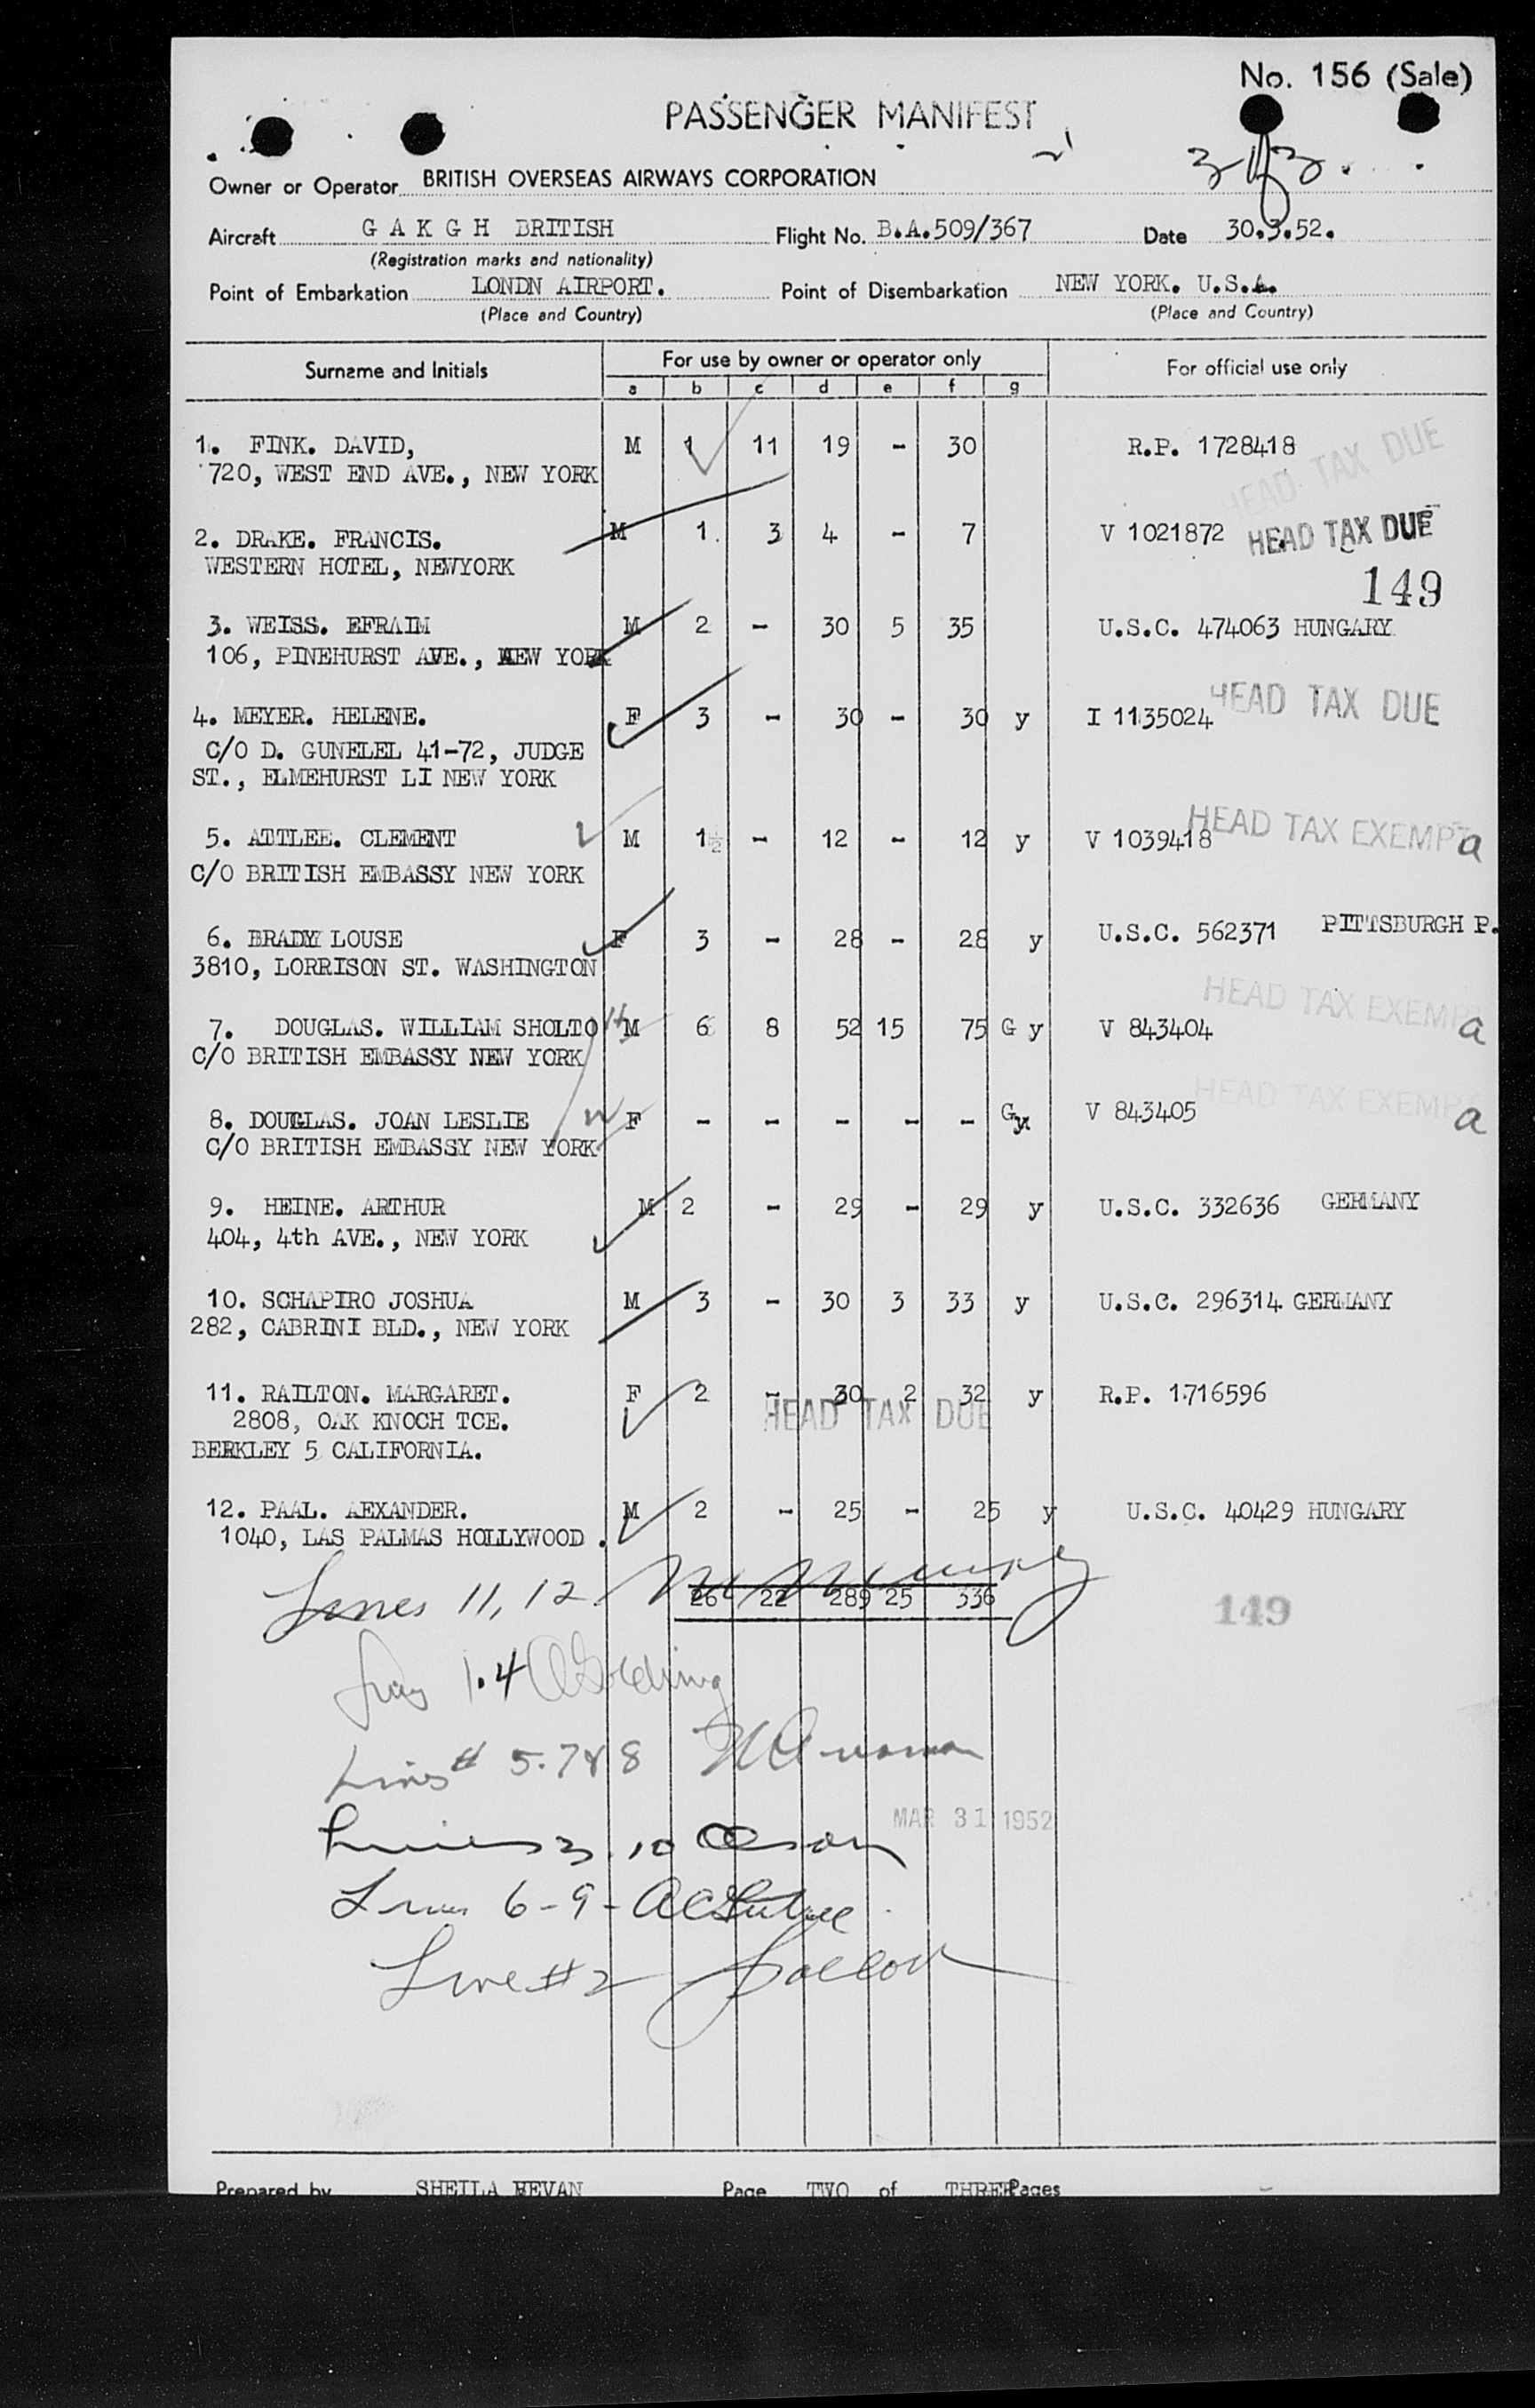 No. 156 (Sale)
PASSENGER MANIFEST
Owner or Operator BRITISH OVERSEAS AIRWAYS CORPORATION
Aircraft G A K G H BRITISH Flight No. B.A.509/367 Date 30.3.52.
(Registration marks and nationality)
Point of Embarkation LONDN AIRPORT. Point of Disembarkation NEW YORK. U.S.A.
(Place and Country) (Place and Country)
Surname and Initials For use by owner or operator only For official use only
a b c d e f g
1. FINK. DAVID, M 1 11 19 - 30 R.P. 1728418 HEAD TAX DUE
720, WEST END AVE., NEW YORK
2. DRAKE. FRANCIS. M 1. 3 4 - 7 V 1021872 HEAD TAX DUE
WESTERN HOTEL, NEWYORK
149
3. WEISS. EFRAIM M 2 - 30 5 35 U.S.C. 474063 HUNGARY
106, PINEHURST AVE., NEW YORK
4. MEYER. HELENE. F 3 - 30 - 30 y I 1135024 HEAD TAX DUE
C/O D. GUNELEL 41-72, JUDGE
ST., ELMEHURST LI NEW YORK
5. ATTLEE. CLEMENT M 1½ - 12 - 12 y V 1039418 HEAD TAX EXEMPT a
C/O BRITISH EMBASSY NEW YORK
6. BRADY LOUSE F 3 - 28 - 28 y U.S.C. 562371 PITTSBURGH P.
3810, LORRISON ST. WASHINGTON
HEAD TAX EXEMP
7. DOUGLAS. WILLIAM SHOLTO M 6 8 52 15 75 G y V 843404 a
C/O BRITISH EMBASSY NEW YORK
HEAD TAX EXEMP
8. DOUGLAS. JOAN LESLIE F - - - - - G y V 843405 a
C/O BRITISH EMBASSY NEW YORK
9. HEINE. ARTHUR M 2 - 29 - 29 y U.S.C. 332636 GERMANY
404, 4th AVE., NEW YORK
10. SCHAPIRO JOSHUA M 3 - 30 3 33 y U.S.C. 296314 GERMANY
282, CABRINI BLD., NEW YORK
11. RAILTON. MARGARET. F 2 - 30 2 32 y R.P. 1716596
HEAD TAX DUE
2808, OAK KNOCH TCE.
BERKLEY 5 CALIFORNIA.
12. PAAL. AEXANDER. M 2 - 25 - 25 y U.S.C. 40429 HUNGARY
1040, LAS PALMAS HOLLYWOOD.
Lines 11, 12
26 22 289 25 336
149
1.4
Lines # 5.7 & 8
MAR 31 1952
Lines 3.10
Lines 6-9-
Line #2
Prepared by SHEILA BEVAN Page TWO of THREE Pages